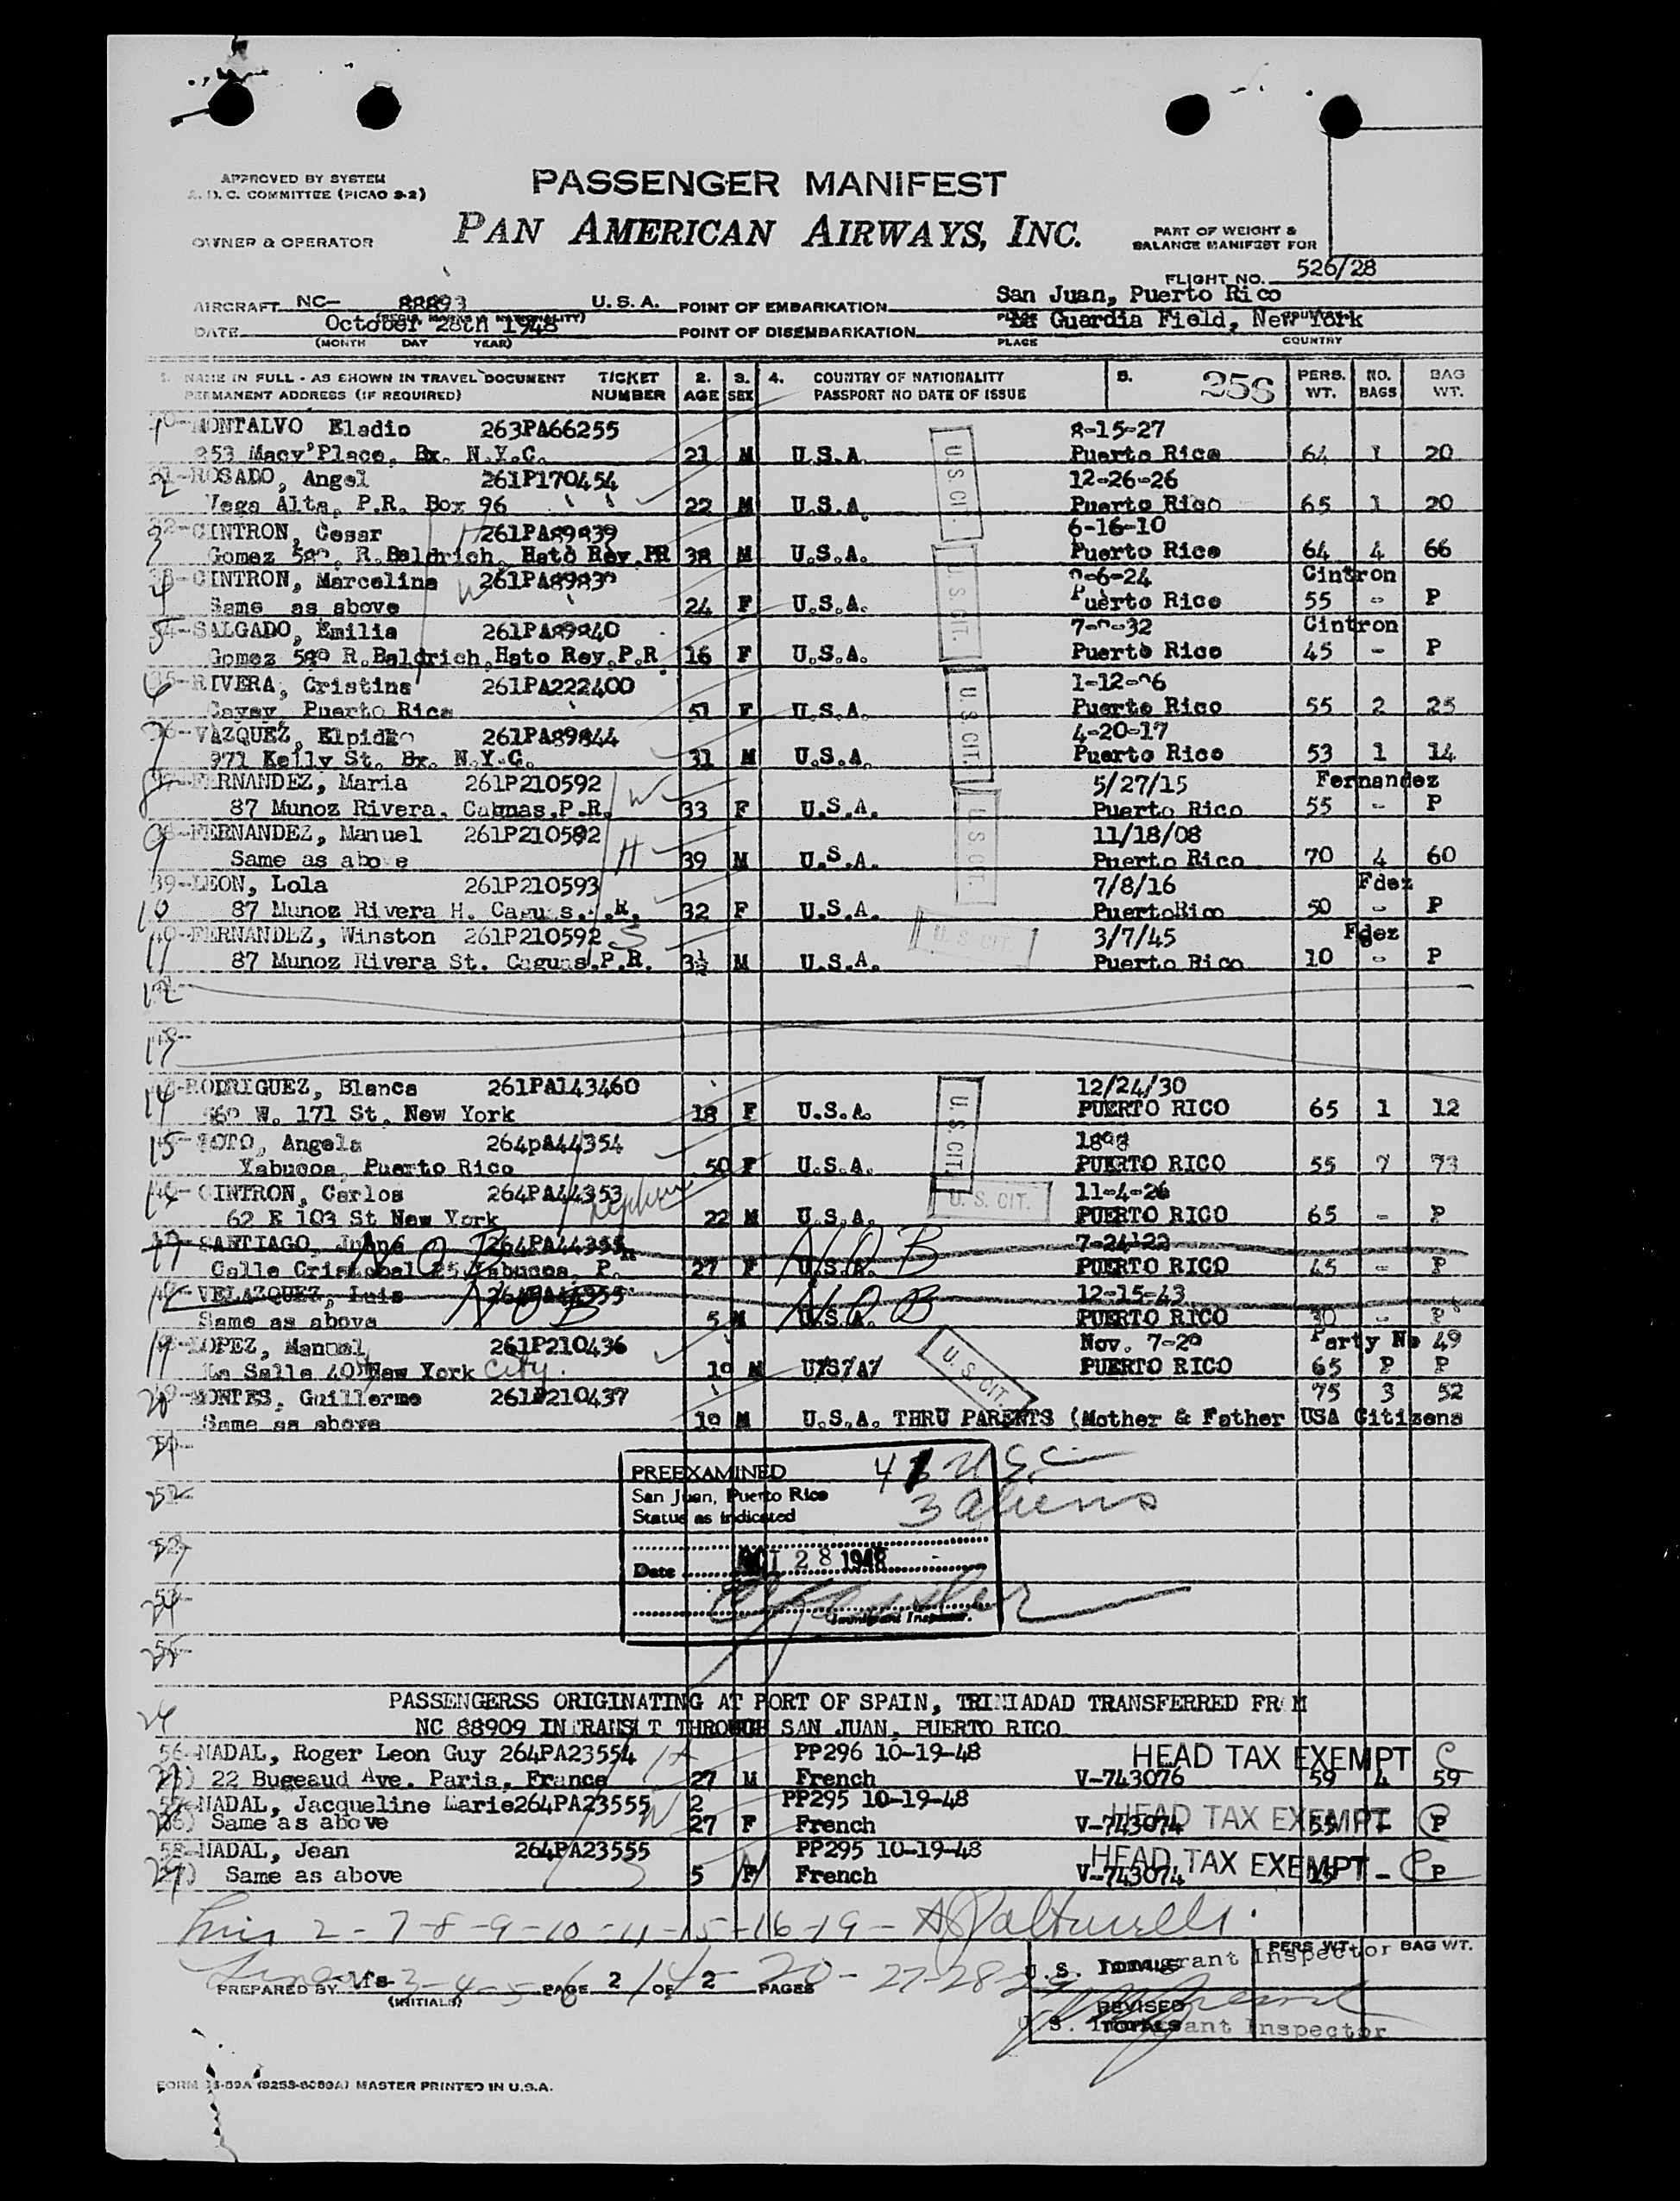 APPROVED BY SYSTEM
A. D. C. COMMITTEE (PICAO S-2)
PASSENGER MANIFEST
OWNER & OPERATOR
PAN AMERICAN AIRWAYS, INC.
PART OF WEIGHT &
BALANCE MANIFEST FOR
FLIGHT NO. 526/28
AIRCRAFT NC- 88893 U. S. A. POINT OF EMBARKATION San Juan, Puerto Rico
DATE October 28th 1948 POINT OF DISEMBARKATION La Guardia Field, New York
(MONTH DAY YEAR) PLACE COUNTRY
1. NAME IN FULL - AS SHOWN IN TRAVEL DOCUMENT TICKET 2. 3. 4. COUNTRY OF NATIONALITY 5. 256 PERS. NO. BAG
PERMANENT ADDRESS (IF REQUIRED) NUMBER AGE SEX PASSPORT NO DATE OF ISSUE WT. BAGS WT.
MONTALVO Eladio 263PA66255 8-15-27
853 Macy Place, Bx. N.Y.C. 21 M U.S.A. Puerto Rico 64 1 20
ROSADO, Angel 261P170454 12-26-26
Vega Alta, P.R. Box 96 22 M U.S.A. Puerto Rico 65 1 20
CINTRON, Cesar H 261PA89839 6-16-10
Gomez R.Baldrich, Hato Rey.PR 38 M U.S.A. Puerto Rico 64 4 66
CINTRON, Marcelina W Cintron
Same as above 24 F U.S.A. Puerto Rico 55 - P
SALGADO, Emilia 261PA89840 Cintron
Gomez R.Baldrich,Hato Rey.P.R. 16 F U.S.A. Puerto Rico 45 - P
RIVERA, Cristina 261PA222400
Cayey, Puerto Rico 51 F U.S.A. Puerto Rico 55 2 25
VAZQUEZ, Elpidio 261PA89844 4-20-17
971 Kelly St. Bx. N.Y.C. 31 M U.S.A. Puerto Rico 53 1 14
FERNANDEZ, Maria 261P210592 W 5/27/15 Fernandez
87 Munoz Rivera, Caguas.P.R. 33 F U.S.A. Puerto Rico 55 - P
FERNANDEZ, Manuel 261P210592 H 11/18/08
Same as above 39 M U.S.A. Puerto Rico 70 4 60
LEON, Lola 261P210593 7/8/16 Fdez
87 Munoz Rivera H. Caguas. .R. 32 F U.S.A. PuertoRico 50 - P
FERNANDEZ, Winston 261P210592 S 3/7/45 Fdez
87 Munoz Rivera St. Caguas.P.R. 3½ M U.S.A. Puerto Rico 10 - P
12
13
RODRIGUEZ, Blanca 261PA143460 12/24/30
W. 171 St. New York 18 F U.S.A. PUERTO RICO 65 1 12
SOTO, Angela 264pA44354
Yabucoa, Puerto Rico 50 F U.S.A. PUERTO RICO 55 7 73
CINTRON, Carlos 264PA44353 nephew 11-4-26
62 E 103 St New York 22 M U.S.A. PUERTO RICO 65 - P
SANTIAGO, 264PA44355 N O B 7-24-22
Calle Cristobal 25 Yabucoa, P. 27 F U.S.A. PUERTO RICO 45 - P
VELAZQUEZ, Luis 264PA44355 N O B 12-15-43
Same as above 5 M U.S.A. PUERTO RICO 30 - P
LOPEZ, Manuel 261P210436 Party No 49
La Salle New York City. M U/S/A/ PUERTO RICO 65 P P
MONTES, Guillermo 261P210437 75 3 52
Same as above M U.S.A. THRU PARENTS (Mother & Father USA Citizens
U.S. CIT.
U.S. CIT.
U.S. CIT.
U.S. CIT.
U.S. CIT.
U.S. CIT.
U.S. CIT.
U.S. CIT.
PREEXAMINED
San Juan, Puerto Rico 3 aliens
Status as indicated
Date OCT 28 1948
Immigrant Inspector.
PASSENGERSS ORIGINATING AT PORT OF SPAIN, TRINIADAD TRANSFERRED FR M
NC 88909 INTRANSIT THROUGH SAN JUAN, PUERTO RICO
56-NADAL, Roger Leon Guy 264PA23554 H PP296 10-19-48 HEAD TAX EXEMPT
22 Bugeaud Ave. Paris, France 27 M French V-743076 59 4 59
57-NADAL, Jacqueline Marie264PA23555 W 2 PP295 10-19-48 HEAD TAX EXEMPT
Same as above 27 F French V-743074 55 - P
58-NADAL, Jean 264PA23555 S PP295 10-19-48 HEAD TAX EXEMPT
Same as above 5 F French V-743074 15 - P
Lines 2-7-8-9-10-11-15-16-19-
PERS WT. BAG WT.
U.S. Immigrant Inspector
TOTALS
PREPARED BY Mfs PAGE 2 OF 2 PAGES
(INITIALS)
REVISED
TOTALS
U.S. Immigrant Inspector
MASTER PRINTED IN U.S.A.